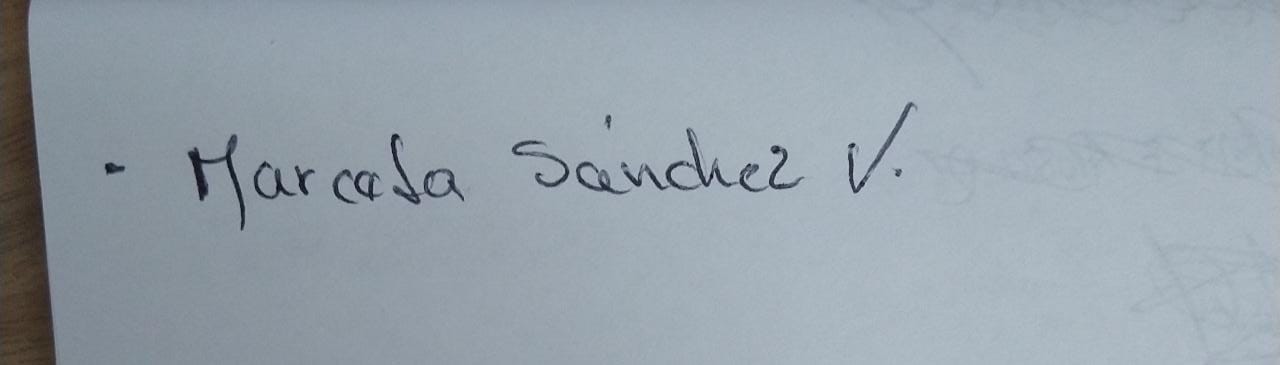 - Marcela Sánchez V.